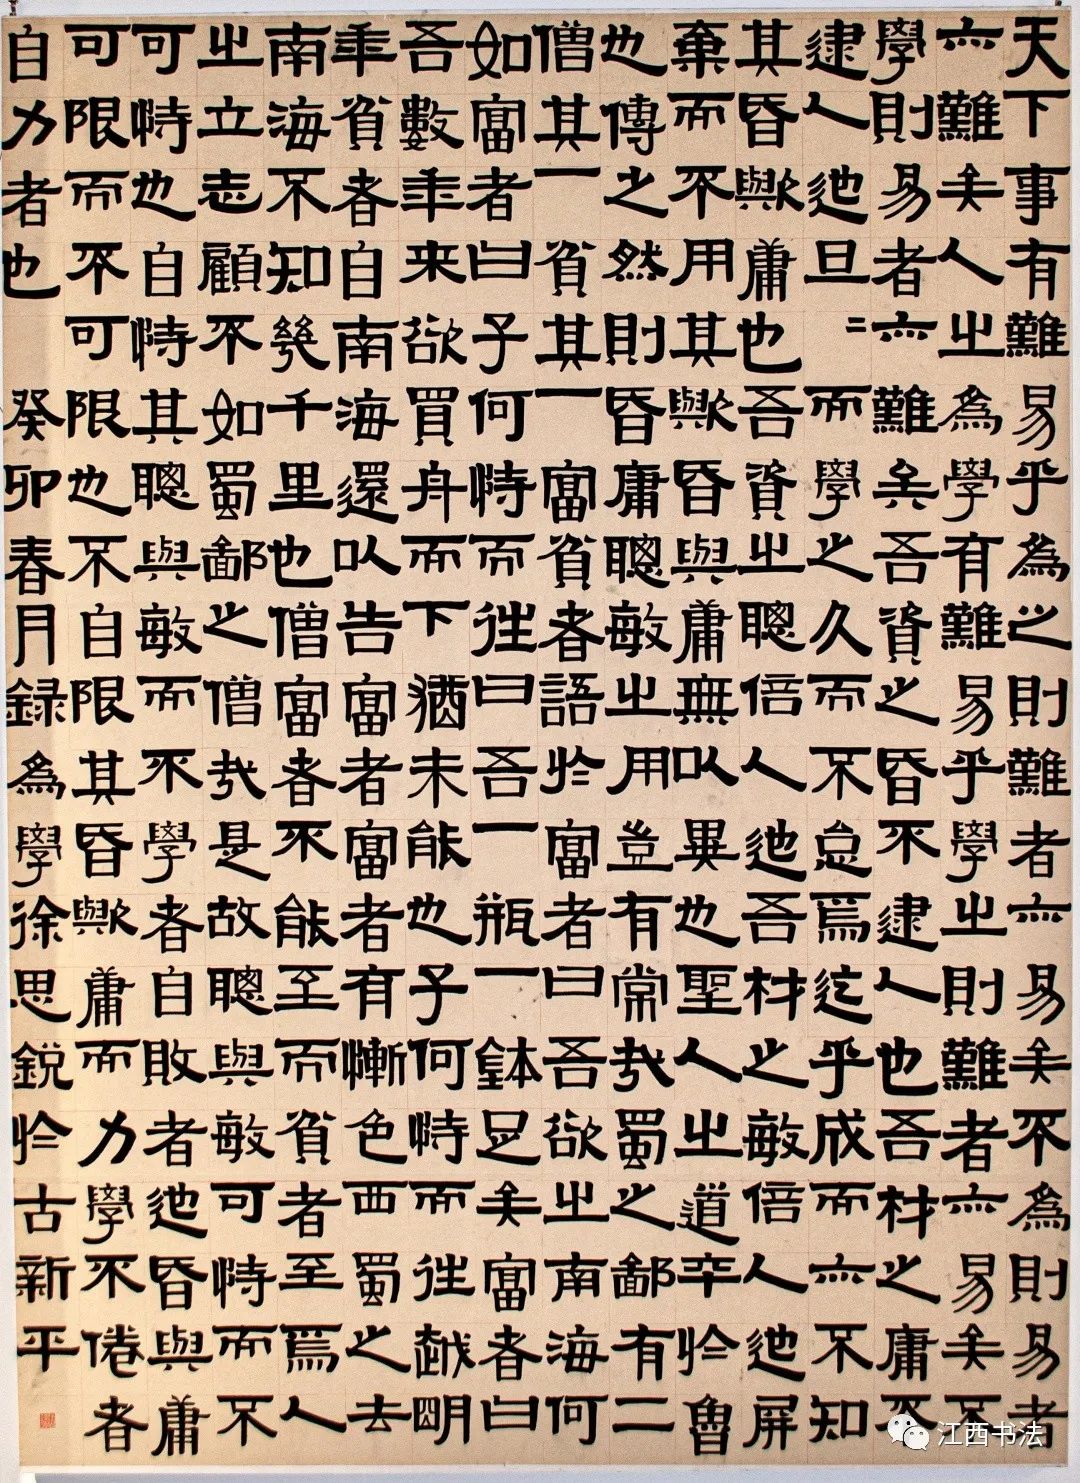 天下事有難易乎為之則難者亦易矣不為則易者
亦難矣人之為學有難易乎學之則難者亦易矣不
學則易者亦難矣吾資之昏不逮人也吾材之庸不
逮人也旦二而學之久而不怠焉迄乎成而亦不知
其昏歟庸也吾資之聰倍人也吾材之敏倍人也屏
棄而不用其歟昏與庸無以異也聖人之道卒於魯
也傳之然則昏庸聰敏之用豈有常哉蜀之鄙有二
僧其一貧其一富貧者語於富者曰吾欲之南海何
如富者曰子何恃而往曰吾一瓶一鉢足矣富者曰
吾數年来欲買舟而下猶未能也子何恃而往越明
年貧者自南海還以告富者富者有慚色西蜀之去
南海不知幾千里也僧富者不能至而貧者至焉人
之立志顧不如蜀鄙之僧哉是故聰與敏可恃而不
可恃也自恃其聰與敏而不學者自敗者也昏與庸
可限而不可限也不自限其昏歟庸而力學不倦者
自力者也 癸卯春月録為學徐思鋭於古新平
江西书法